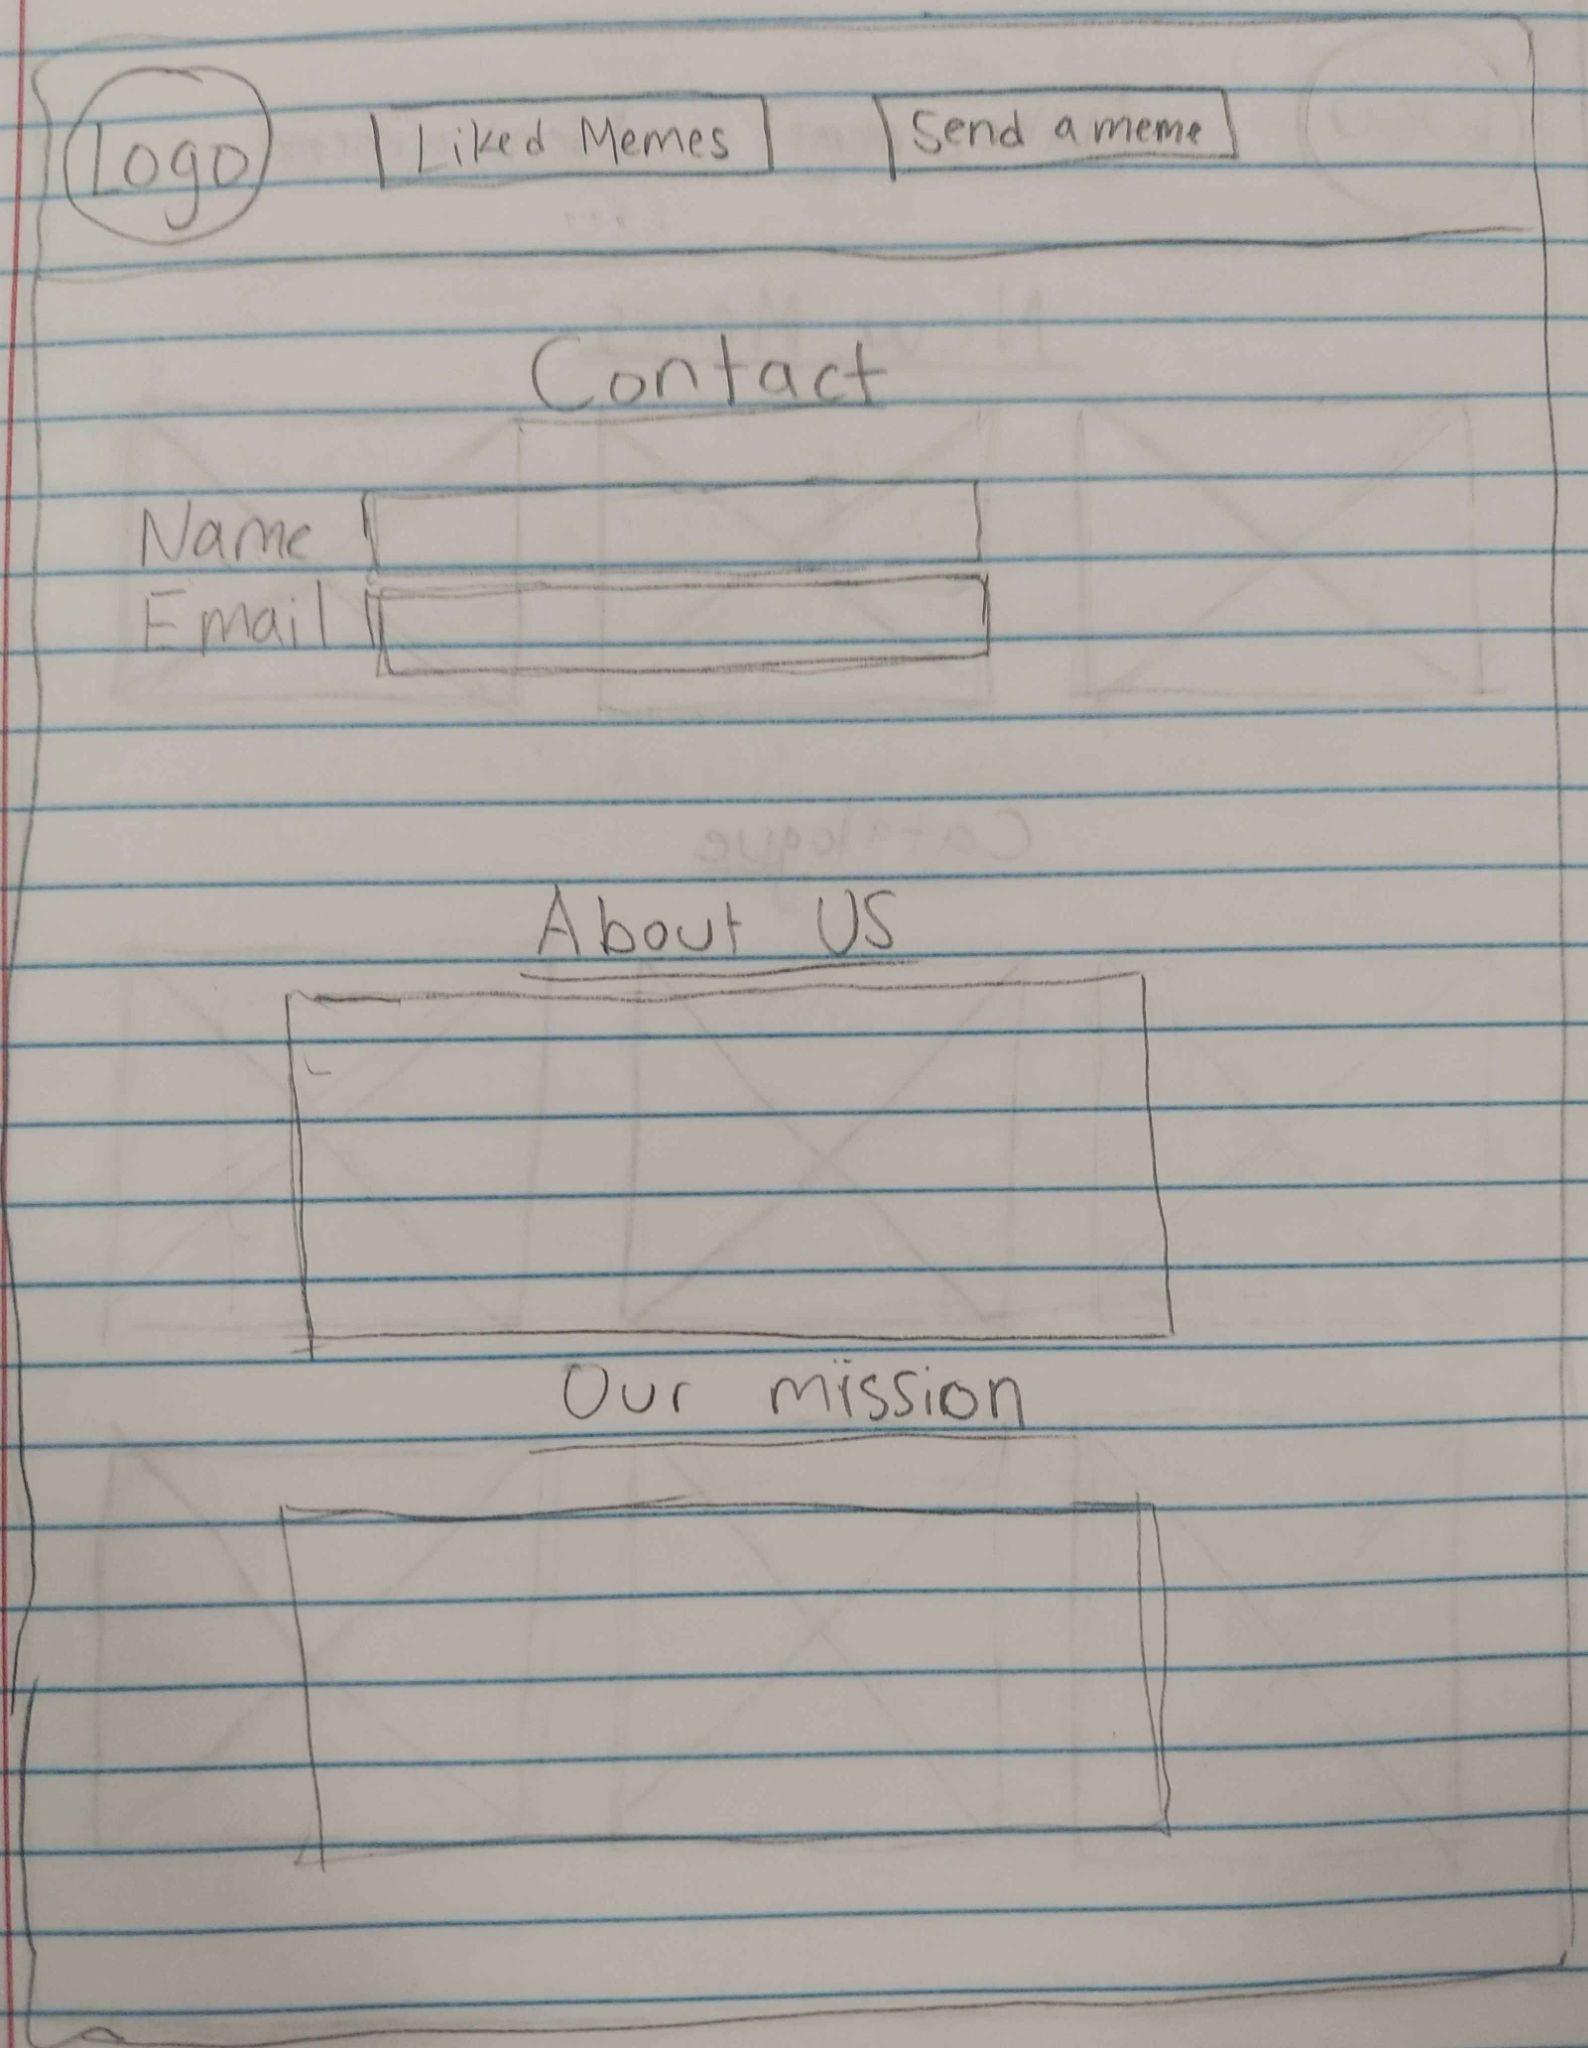 Logo Liked Memes Send a meme
Contact
Name
Email
About US
Our mission